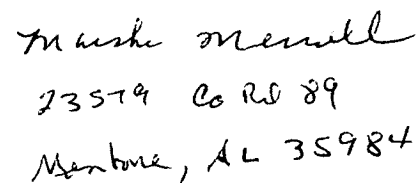 Marsha Merrill
23579 Co Rd 89
Mentone, AL 35984